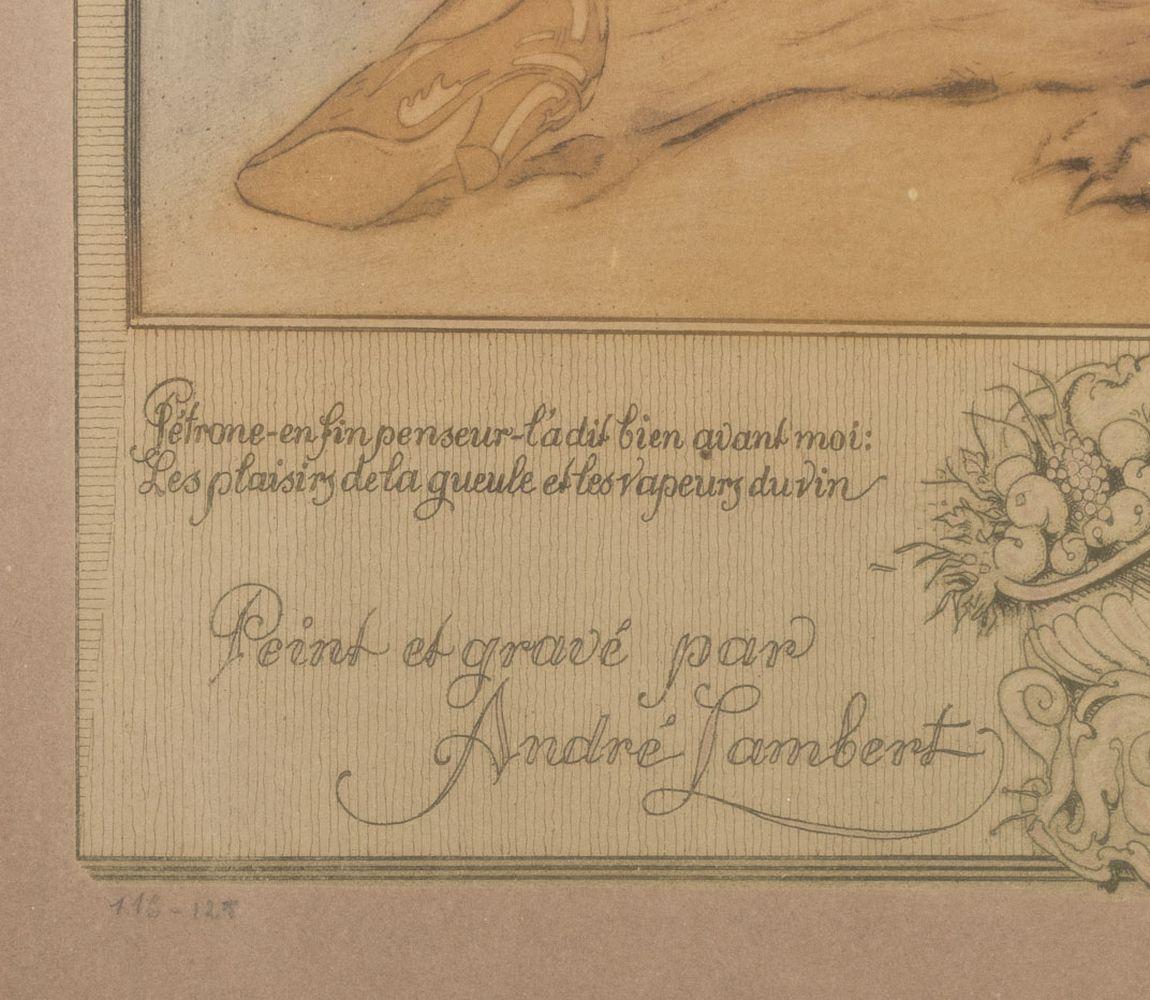 Pétrone-en fin penseur-l'a dit bien avant moi:
Les plaisirs de la gueule et les vapeurs du vin
Peint et gravé par
André Lambert